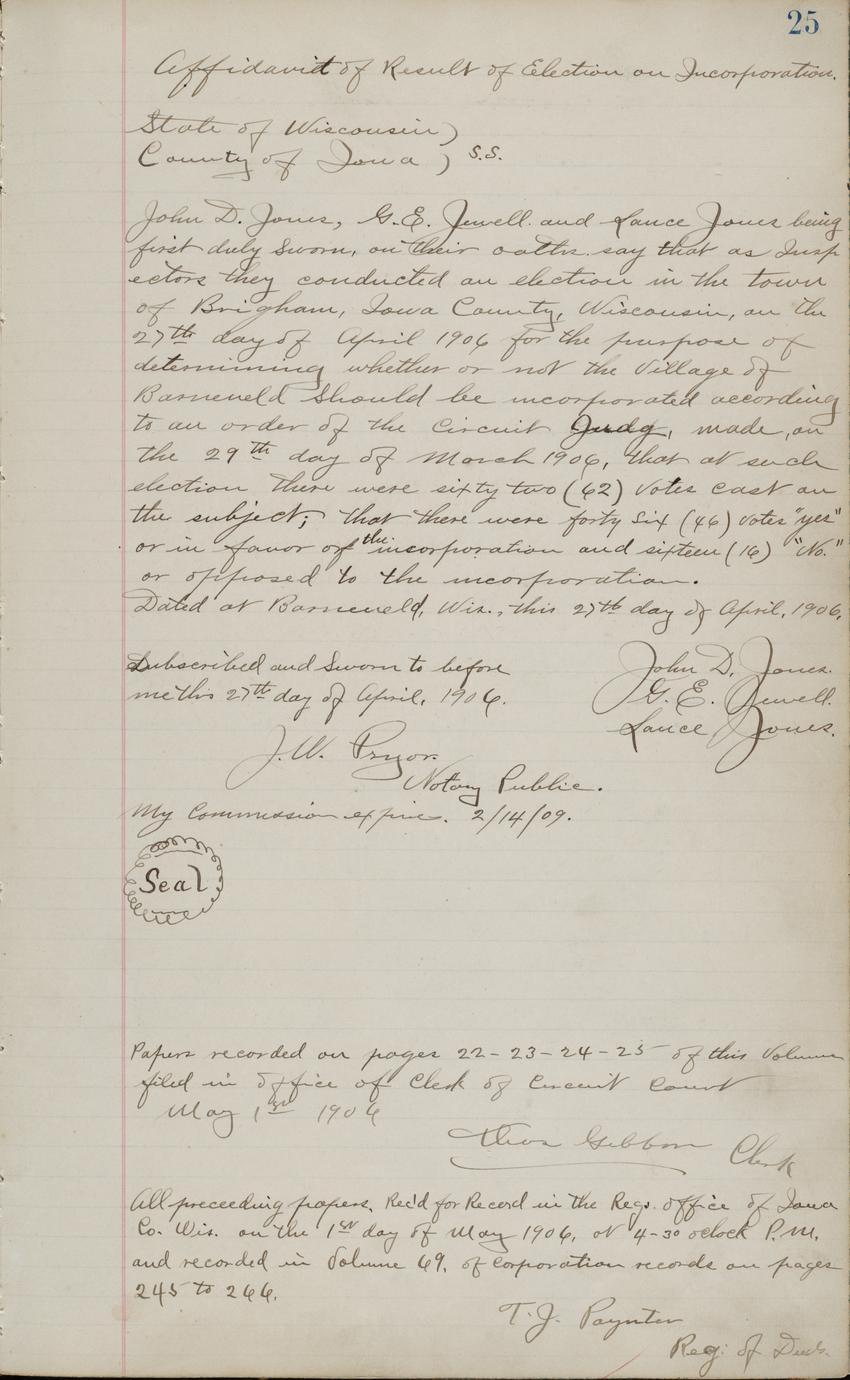 25
Affidavit of Result of Election on Incorporation.
State of Wisconsin )
County of Iowa ) S.S.
John D. Jones, G.E. Jewell. and Lance Jones being
first duly Sworn, on their oaths. say that as Insp
ectors they conducted an election in the town
of Brigham, Iowa County, Wisconsin, on the
27th day of April 1906 for the purpose of
determining whether or not the Village of
Barneveld Should be incorporated according
to an order of the Circuit Judg, made, on
the 29th day of March 1906, that at such
election there were sixty two (62) Votes cast on
the subject; that there were forty Six (46) votes "yes"
or in favor of the incorporation and sixteen (16) "No."
or opposed to the incorporation.
Dated at Barneveld, Wis., this 27th day of April, 1906.
Subscribed and Sworn to before
me this 27th day of April, 1906.
John D. Jones.
G. E. Jewell.
Lance Jones.
J. W. Pryor.
Notary Public.
My Commission expire. 2/14/09.
Seal
Papers recorded on pages 22-23-24-25 of this Volume
filed in office of Clerk of Circuit Court
May 1st 1906
Thos Gibbon Clerk
All preceeding papers, Rec'd for Record in the Regs. office of Iowa
Co. Wis. on the 1st day of May 1906, at 4-30 oclock P.M.
and recorded in Volume 69, of Corporation records on pages
245 to 266.
T. J. Paynter
Reg. of Deeds.